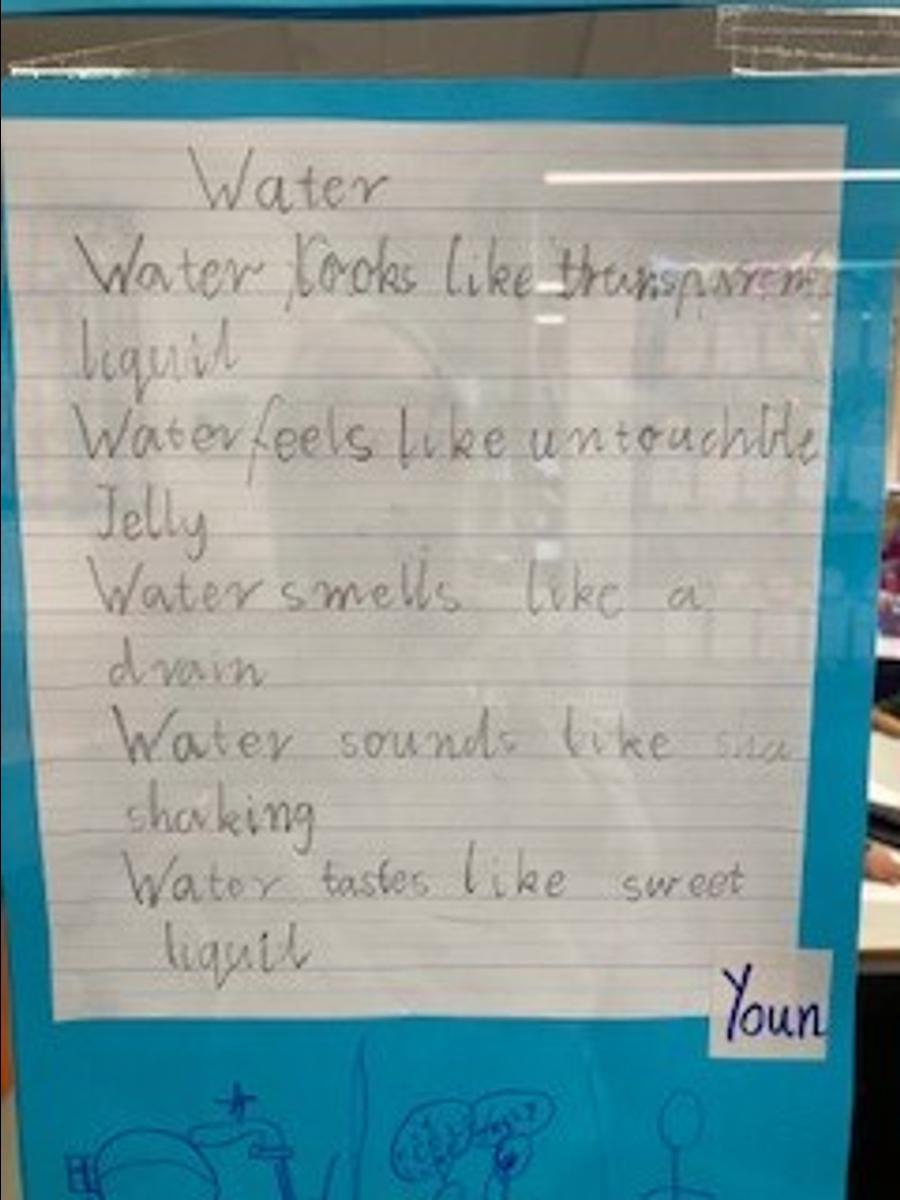 Water
Water looks like transparent
liquid
Water feels like untouchble
Jelly
Water smells like a
drain
Water sounds like sha
shaking
Water tastes like sweet
liquid
Youn